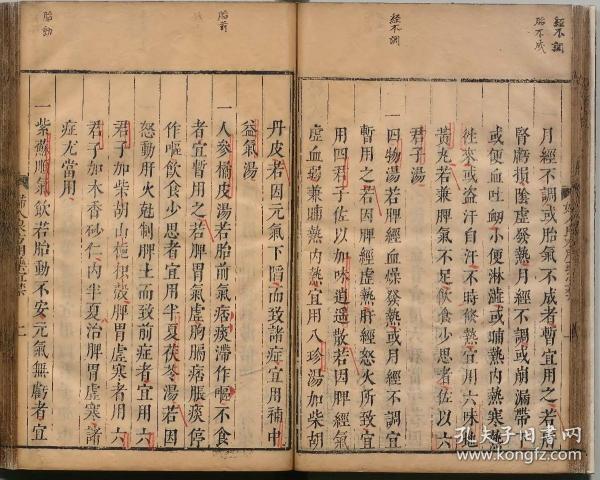 經不調
胎不成
經不調
月經不調或胎氣不成者暫宜用之若
腎虧損陰虛發熱月經不調或崩漏帶下
或便血吐衂小便淋澁或晡熱內熱寒熱
徃來或盗汗自汗不時倏熱宜用六味地
黃丸若兼脾氣不足飲食少思者佐以六
君子湯
一四物湯若脾經血燥發熱或月經不調宜
暫用之若脾經虛熱肝經怒火所致宜
用四君子佐以加味逍遥散若因脾經氣
虛血弱兼晡熱內熱宜用八珍湯加柴胡
胎前
胎動
丹皮若因元氣下陷而致諸症宜用補中
益氣湯
一人參橘皮湯若胎前氣痞痰滯作嘔不食
者宜暫用之若脾胃氣虛胸膈痞脹痰停
作嘔飲食少思者宜用半夏茯苓湯若因
怒動肝火尅制脾土而致前症者宜用六
君子加柴胡山梔枳殻脾胃虛寒者用六
君子加木香砂仁內半夏治脾胃虛寒諸
症尤當用
一紫蘇順氣飲若胎動不安元氣無虧者宜
孔夫子旧书网
www.kongfz.com